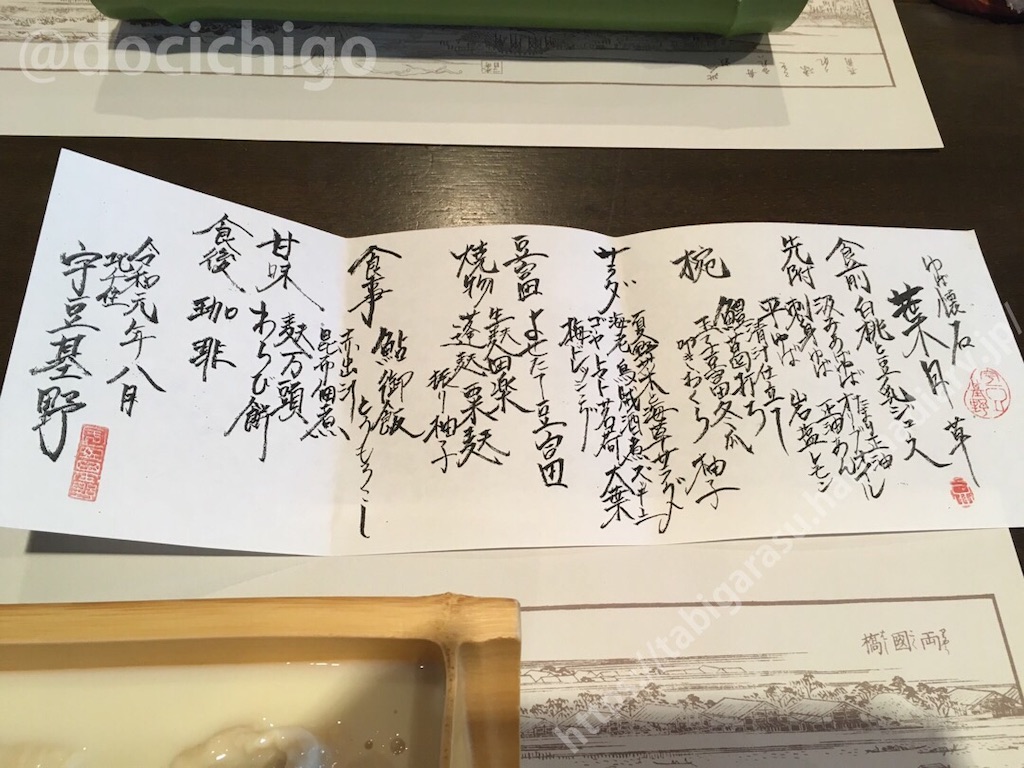 ゆば懐石
葉月 草
食前 白桃と豆乳ジュース
汲みあげゆば オリーブオイル
先附 刺身ゆば 岩塩 レモン
平ゆば
清汁仕立
椀 鱧葛打ち
玉子豆富 冬瓜 柚子
叩きわらび
夏野菜と海草サラダ
サラダ 海老 鳥賊酒煮 ズッキーニ
ゴーヤ トマト 茗荷 大葉
梅ドレッシング
豆富 よせたて豆富
焼物 生麩田楽
蓬麩 粟麩
振り柚子
食事 鮎御飯
とうもろこし
赤出汁
昆布佃煮
甘味 麩万頭
わらび餅
食後 珈琲
令和元年八月
北千住
宇豆基野
両國橋
@docichigo
http://tabigarasu.hatenadiary.jp/